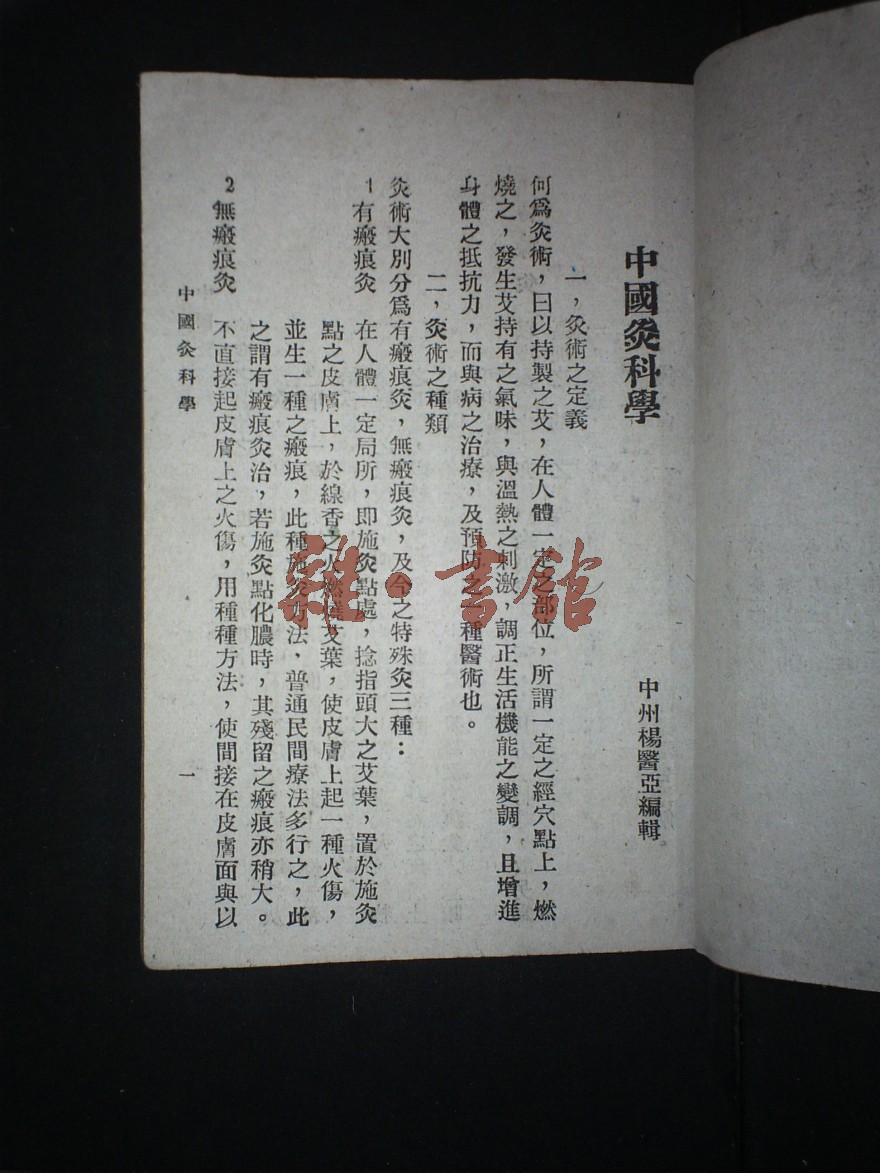 中國灸科學
中州楊醫亞編輯
一，灸術之定義
何爲灸術，曰以持製之艾，在人體一定之部位，所謂一定之經穴點上，燃
燒之，發生艾持有之氣味，與溫熱之刺激，調正生活機能之變調，且增進
身體之抵抗力，而與病之治療，及預防之一種醫術也。
二，灸術之種類
灸術大別分爲有瘢痕灸，無瘢痕灸，及今之特殊灸三種：
1 有瘢痕灸　在人體一定局所，即施灸點處，捻指頭大之艾葉，置於施灸
點之皮膚上，於線香之火燃燒艾葉，使皮膚上起一種火傷，
並生一種之瘢痕，此種施灸方法，普通民間療法多行之，此
之謂有瘢痕灸治，若施灸點化膿時，其殘留之瘢痕亦稍大。
2 無瘢痕灸　不直接起皮膚上之火傷，用種種方法，使間接在皮膚面與以
中國灸科學
一
雜·書館